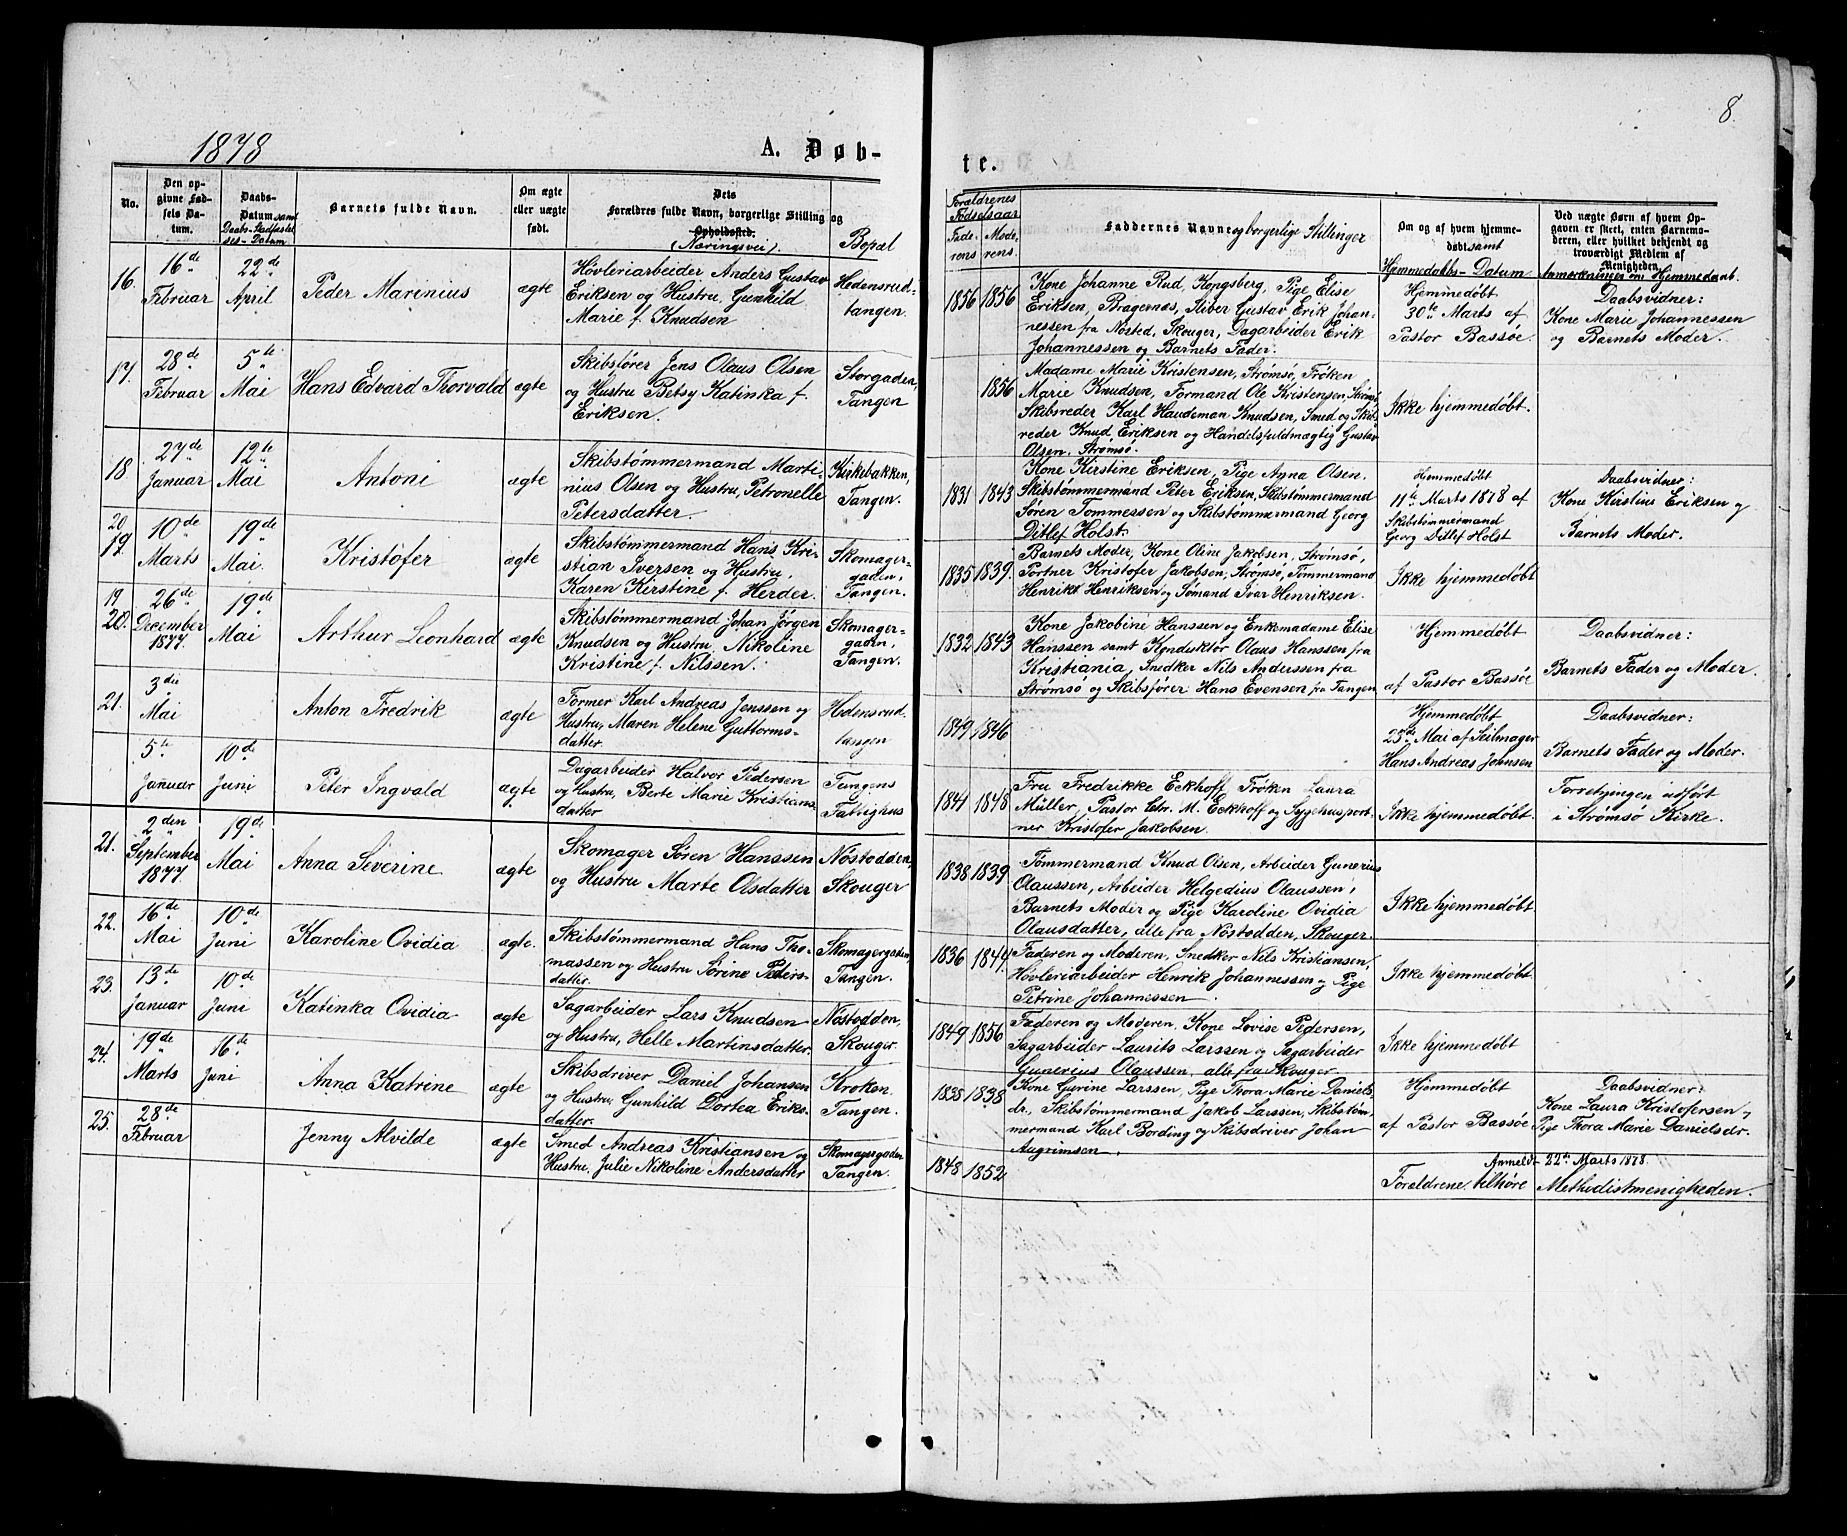 8.
1878
A. Døb-
te.
No.
Den op-
givne Fød-
sels Da-
tum.
Daabs-
Datum samt
Daabs-Stadfæstel-
ses-Datum
Barnets fulde Navn.
Om ægte
eller uægte
født.
Dets
Forældres fulde Navn, borgerlige Stilling og
Opholdssted.
(Næringsvei).
Bopæl
Forældrenes
Fødselsaar
Fade-
rens
Mode-
rens.
Faddernes Navne og borgerlige Stillinger
Om og af hvem hjemme-
døbt samt
Hjemmedaabs-Datum
Ved uægte Børn af hvem Op-
gaven er skeet, enten Barnemo-
deren, eller hvilket bekjendt og
troværdigt Medlem af
Menigheden.
Anmærkninger om Hjemmedaab.
16.
16de
Februar
22de
April
Peder Marinius
ægte
Høvleriarbeider Anders Gustav
Eriksen og Hustru, Gunhild
Marie f. Knudsen
Hedensrud-
tangen.
1856
1856
Kone Johanne Rud, Kongsberg, Pige Elise
Eriksen, Bragernæs, Sliber Gustav Erik Johan-
nessen fra Nøsted, Skouger, Dagarbeider Erik
Johannessen og Barnets Fader.
Hjemmedøbt
30te Marts af
Pastor Bassøe
Daabsvidner:
Kone Marie Johannessen
og Barnets Moder.
17.
28de
Februar
5te
Mai
Hans Edvard Thorvald
ægte
Skibsfører Jens Olaus Olsen
og Hustru Betsy Katinka f.
Eriksen.
Storgaden,
Tangen
1856
Madame Marie Kristensen, Strømsø, Frøken
Marie Knudsen, Formand Ole Kristensen, Strømsø,
Skibsreder Karl Haudeman Knudsen, Smed og Skibs-
reder Knud Eriksen og Handelsfuldmægtig Gustav
Olsen, Strømsø.
Ikke hjemmedøbt.
18.
27de
Januar
12te
Mai
Antoni
ægte
Skibstømmermand Marti-
nius Olsen og Hustru, Petronelle
Petersdatter.
Kirkebakken,
Tangen.
1831
1843
Kone Kirstine Eriksen, Pige Anna Olsen,
Skibstømmermand Peter Eriksen, Skibstømmermand
Søren Tommessen og Skibstømmermand Georg
Ditlef Holst.
Hjemmedøbt
11te Marts 1878 af
Skibstømmermand
Georg Ditlef Holst
Daabsvidner:
Kone Kirstine Eriksen og
Barnets Moder.
20
19.
10de
Marts
19de
Mai.
Kristofer
ægte
Skibstømmermand Hans Kri-
stian Iversen og Hustru,
Karen Kirstine f. Herder.
Skomager-
gaden,
Tangen.
1835
1839.
Barnets Moder, Kone Oline Jakobsen, Strømsø,
Portner Kristofer Jakobsen, Strømsø, Tømmermand
Henrik Henriksen og Sømand Ivar Henriksen.
Ikke hjemmedøbt
19.
20.
26de
December
1877.
19de
Mai
Arthur Leonhard
ægte
Skibstømmermand Johan Jørgen
Knudsen og Hustru, Nikoline
Kristine f. Nilssen.
Skomager-
gaden,
Tangen.
1832
1843
Kone Jakobine Hanssen og Enkemadame Elise
Hanssen samt Konduktør Olaus Hanssen fra
Kristiania, Snedker Nils Anderssen fra
Strømsø og Skibsfører Hans Evensen fra Tangen
Hjemmedøbt
af Pastor Bassøe
Daabsvidner:
Barnets Fader og Moder.
21.
3die
Mai
Anton Fredrik
ægte
Former Karl Andreas Jenssen og
Hustru, Maren Helene Guttorms-
datter.
Hedensrud-
tangen
1849
1846
Hjemmedøbt
23de Mai af Seilmager
Hans Andreas Johnsen
Daabsvidner:
Barnets Fader og Moder.
5te
Januar
10de
Juni
Peter Ingvald
ægte
Dagarbeider Halvor Pedersen
og Hustru, Berte Marie Kristians-
datter
Tangens
Fattighus
1841
1848
Fru Fredrikke Eckhoff, Frøken Laura
Müller, Pastor Chr. M. Eckhoff og Sygehusport-
ner Kristofer Jakobsen.
Ikke hjemmedøbt.
Forretningen udført
i Strømsø Kirke.
21.
2den
September
1877.
19de
Mai
Anna Severine
ægte
Skomager Søren Hanssen
og Hustru Marte Olsdatter
Nøstodden,
Skouger
1838
1839
Tømmermand Knud Olsen, Arbeider Gunerius
Olaussen, Arbeider Helgedius Olaussen,
Barnets Moder og Pige Karoline Ovidia
Olausdatter, alle fra Nøstodden, Skouger.
Ikke hjemmedøbt.
22.
16de
Mai
10de
Juni
Karoline Ovidia
ægte.
Skibstømmermand Hans Tho-
massen og Hustru Sørine Peders-
datter.
Skomagergaden,
Tangen.
1836
1844.
Faderen og Moderen, Snedker Nils Kristiansen,
Høvleriarbeider Henrik Johannessen og Pige
Petrine Johannessen.
Ikke hjemmedøbt
23.
13de
Januar
10de
Juni
Katinka Ovidia
ægte
Sagarbeider Lars Knudsen
og Hustru, Helle Martinsdatter.
Nøstodden,
Skouger.
1849
1856
Faderen og Moderen, Kone Lovise Pedersen,
Sagarbeider Laurits Larssen og Sagarbeider
Gunerius Olaussen, alle fra Skouger
Ikke hjemmedøbt
24.
19de
Marts
16de
Juni
Anna Katrine
ægte
Skibsdriver Daniel Johansen
og Hustru, Gunhild Dortea Eriks-
datter.
Kroken,
Tangen.
1838
1838
Kone Gurine Larssen, Pige Thora Marie Daniels-
dr., Skibstømmermand Jakob Larssen, Skibstøm-
mermand Karl Bording og Skibsdriver Johan
Augrimsen.
Hjemmedøbt
af Pastor Bassøe
Daabsvidner:
Kone Laura Kristofersen,
Pige Thora Marie Danielsdr.
25.
28de
Februar
Jenny Alvilde
ægte
Smed Andreas Kristiansen og
Hustru, Julie Nikoline Andersdatter
Skomagergaden
Tangen.
1848
1852
Anmeldt 22de Marts 1878.
Forældrene tilhøre Methodistmenigheden.